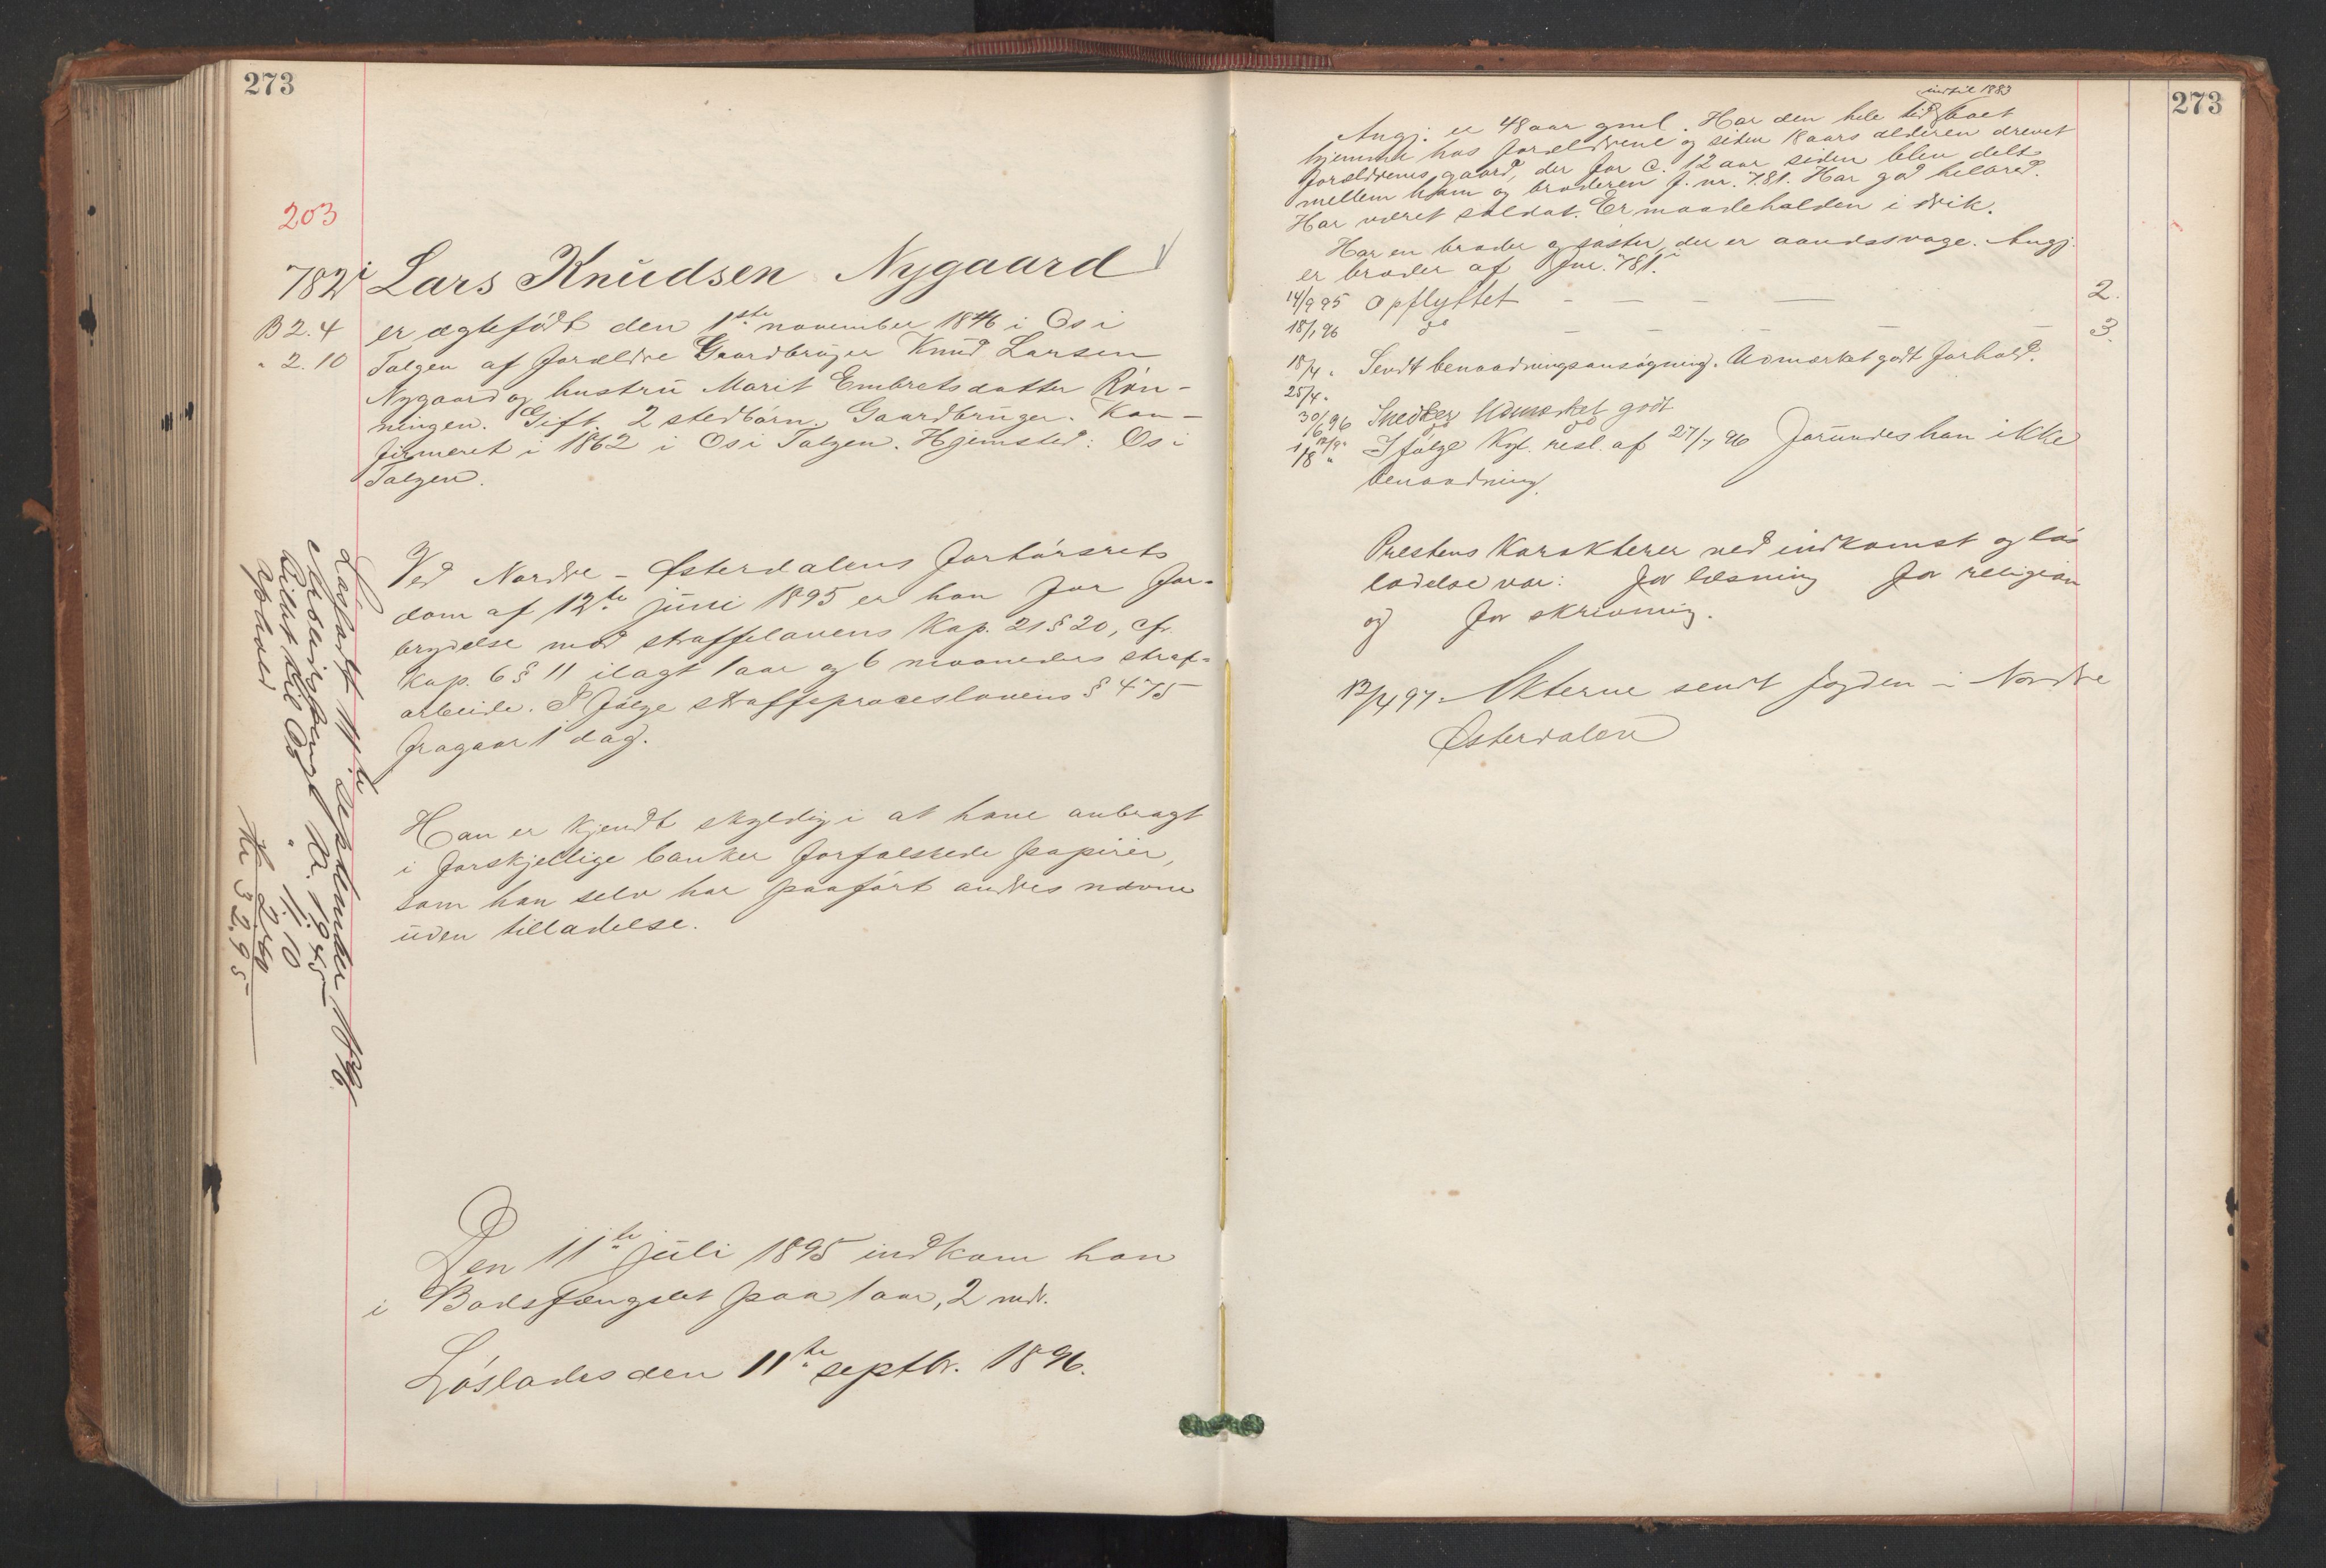 273
203
782 i Lars Knudsen Nygaard
B 2.4 er ægtefødt den 1ste november 1846 i Os i
" 2.10 Tolgen af forældre Gaardbruger Knud Larsen
Nygaard og hustru Marit Embretsdatter Røn-
ningen. Gift. 2 stedbørn. Gaardbruger. Kon-
firmeret i 1862 i Os i Tolgen. Hjemsted: Os i
Tolgen.
Ved Nordre-Østerdalens forhørsrets
dom af 12te juni 1895 er han for for-
brydelse mod straffelovens Kap. 21 § 20, cfr.
Kap. 6 § 11 ilagt 1 aar og 6 maaneders straf-
arbeide. I følge straffeproceslovens § 475
fragaar 1 dag.
Han er kjendt skyldig i at have anbragt
i forskjellige banker forfalskede papirer,
som han selv har paaført andres navne
uden tilladelse.
Den 11te juli 1895 indkom han
i Bodsfængslet paa 1 aar, 2 mdr.
Løslades den 11te septbr. 1896.
Løsladt 11te september 1896
Arbeidspenge Kr. 19.45
Billet til Os " 11.10
Ophold Kr. 2.40
Kr 32,95
273
indtil 1883
Angj. er 48 aar gml. Har den hele tid boet
hjemme hos forældrene og siden 18 aars alderen drevet
forældrenes gaard, der for c. 12 aar siden blev delt
mellem ham og broderen f. nr. 781. Har god helbred.
Har været soldat. Er maadeholden i drik.
Har en broder og søster, der er aandssvage. Angj.
er broder af fnr. 781.
14/9 95 Opflyttet — — — — 2.
18/1 96 do — — — — — 3.
18/4 " Sendt benaadningsansøgning. Udmærket godt forhold.
25/4 "
30/6 96 Snedker Udmærket godt
do do
1/8 " I følge Kgl. resl. af 27/7 96 forundes han ikke
benaadning.
Prestens Karakterer ved indkomst og løs
ladelse var: for læsning for religion
og for skrivning.
13/4 97. Akterne sendt fogden i Nordre
Østerdalen